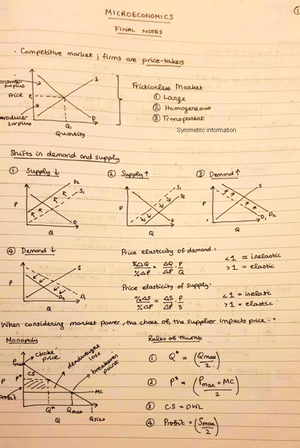 MICROECONOMICS
FINAL NOTES
①
· Competitive market ; firms are price-takers
surplus
Price
producer surplus
S
D
Q
Quantity
Frictionless Market
① Large
② Homogeneous
③ Transparent
Symmetric information
Shifts in demand and supply
① Supply ↓
② Supply ↑
③ Demand ↑
P
S2
S1
D
Q
P
S1
S2
D
Q
P
S
D2
D1
Q
④ Demand ↓
P
S
D1
D2
Q
Price elasticity of demand :
%ΔQ / %ΔP = ΔQ / ΔP · P / Q
< 1 = inelastic
> 1 = elastic
Price elasticity of supply :
%ΔS / %ΔP = ΔS / ΔP · P / S
< 1 = inelastic
> 1 = elastic
When considering market power, the choice of the supplier impacts price :
Monopolis
Rules of thumb
Pmax
choke price
deadweight loss
breakeven point
CS
P
P*
Profit
MC
Q*
Qmax
Qsize
Q
① Q* = (Qmax / 2)
② P* = (Pmax + MC / 2)
③ CS = DWL
④ Profit = (Smax / 2)